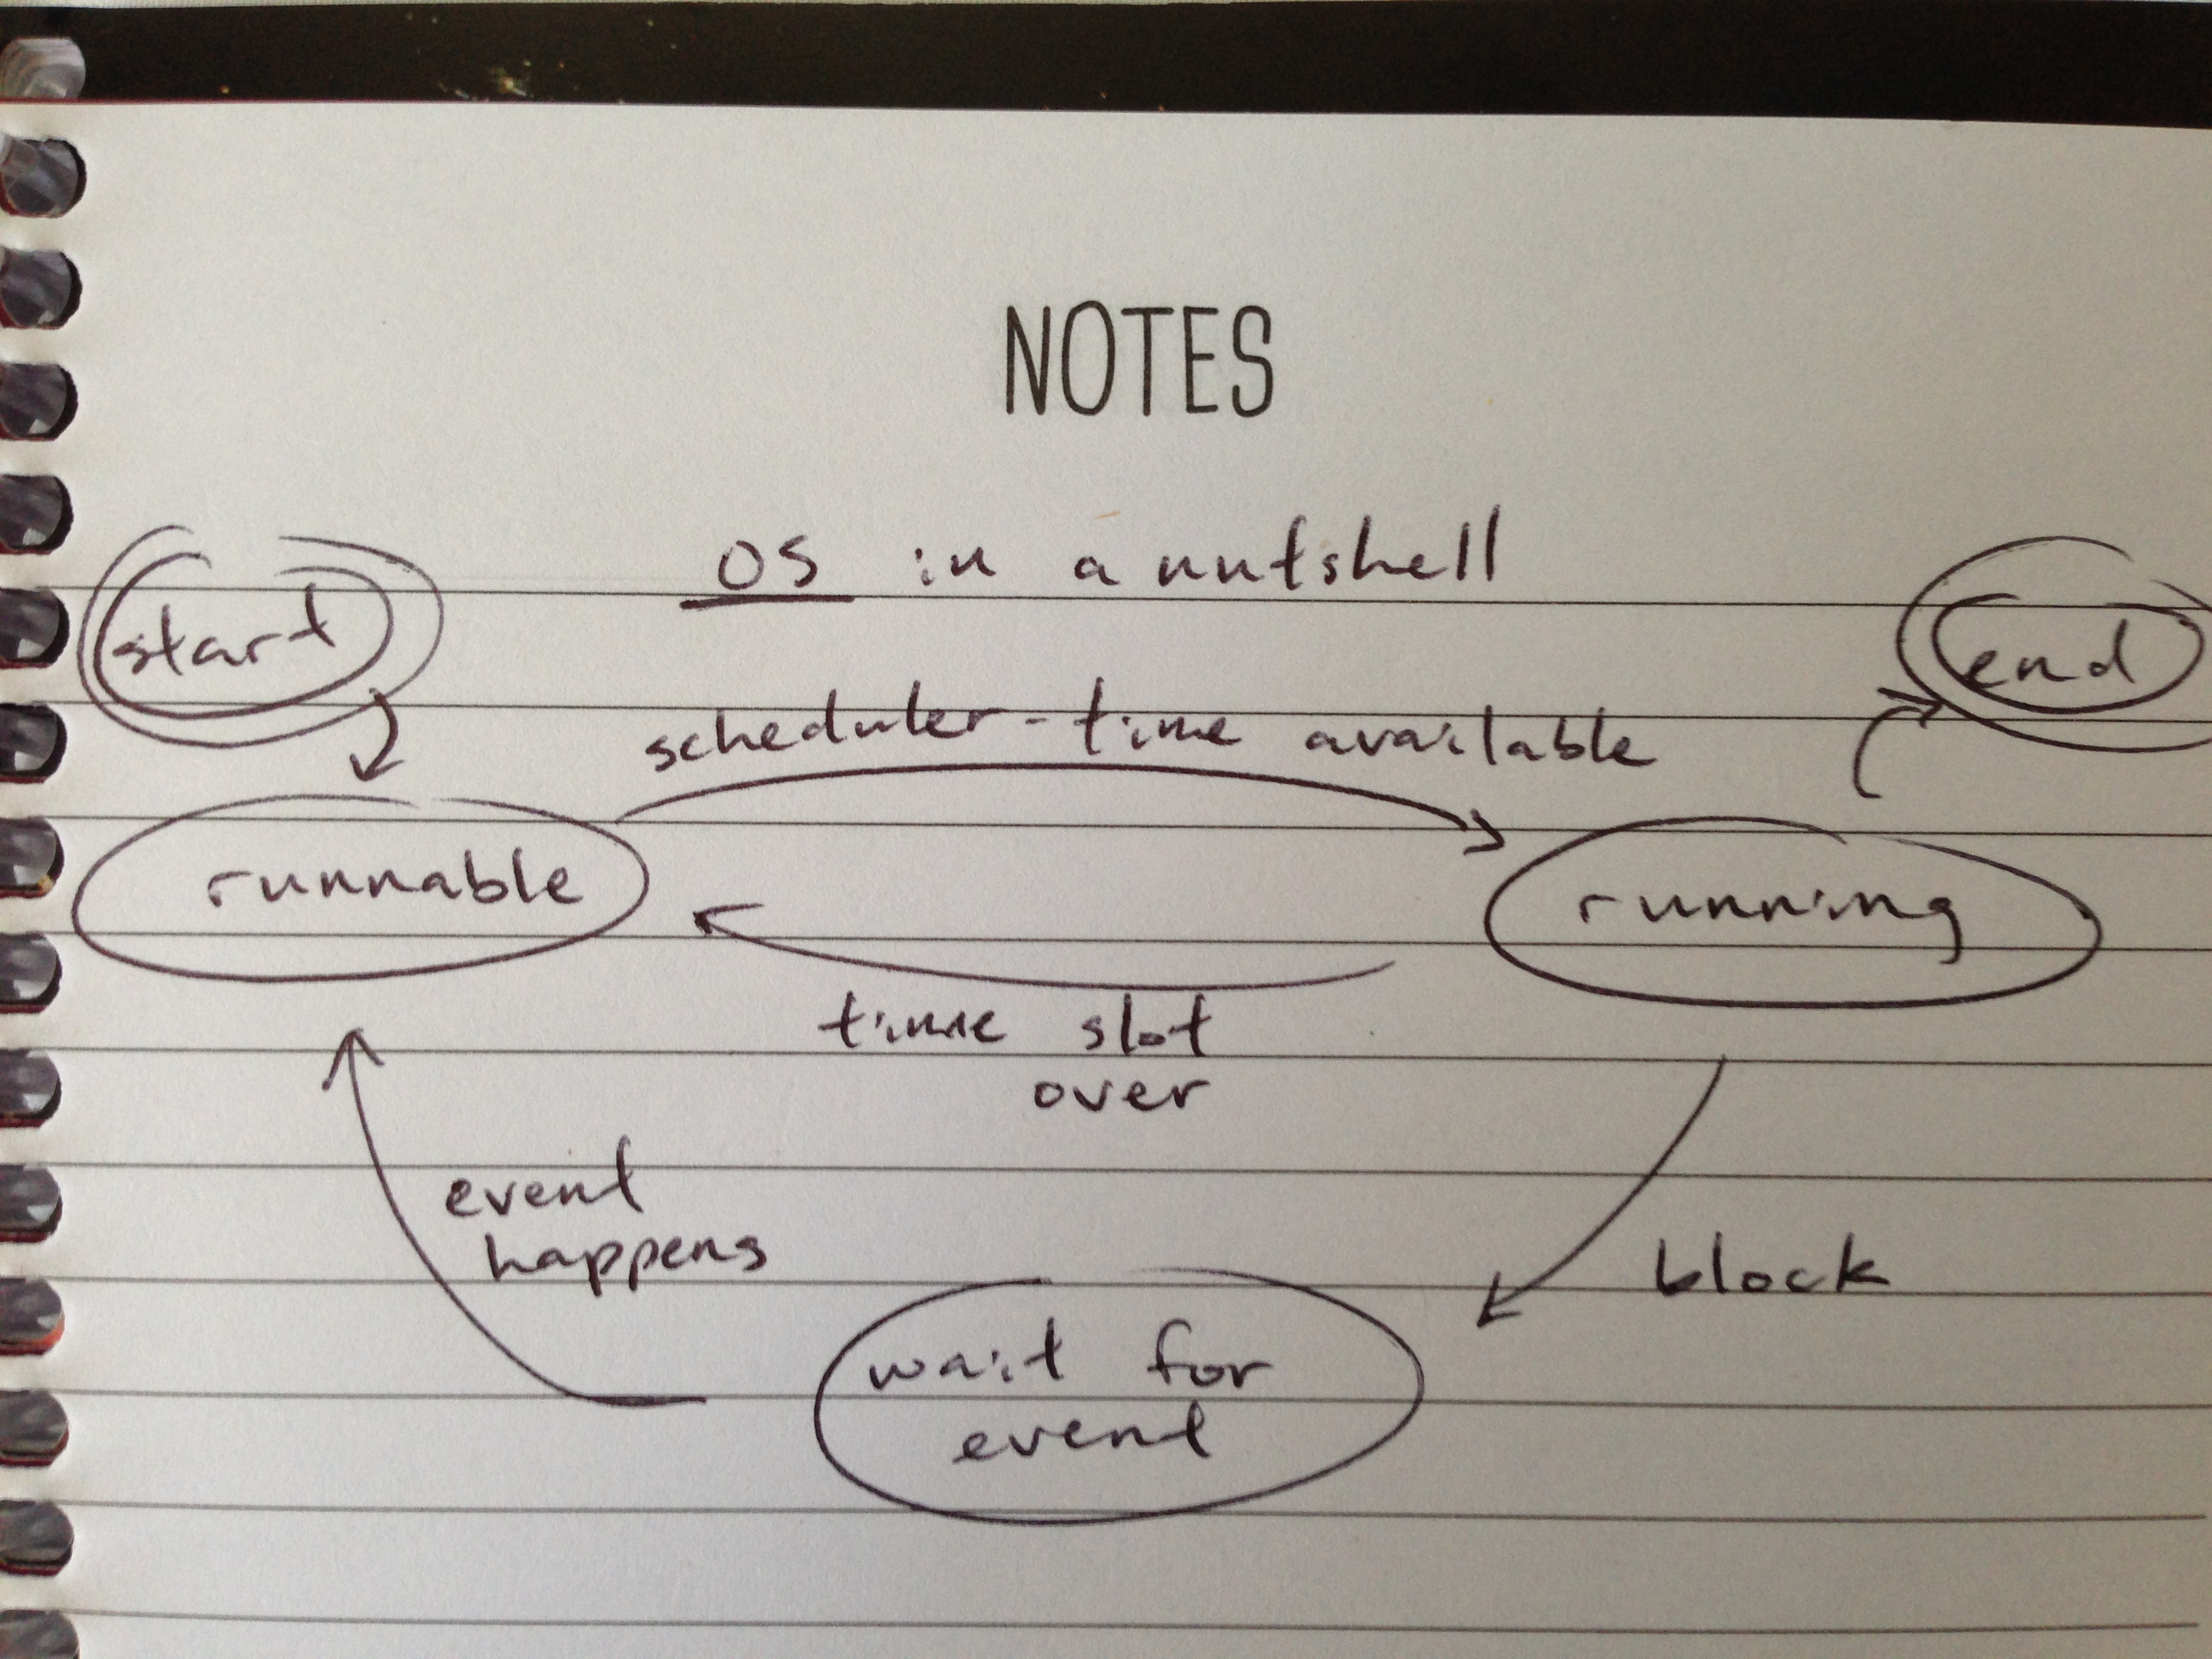 NOTES
OS in a nutshell
start
end
scheduler-time available
runnable
running
time slot
over
event
happens
block
wait for
event